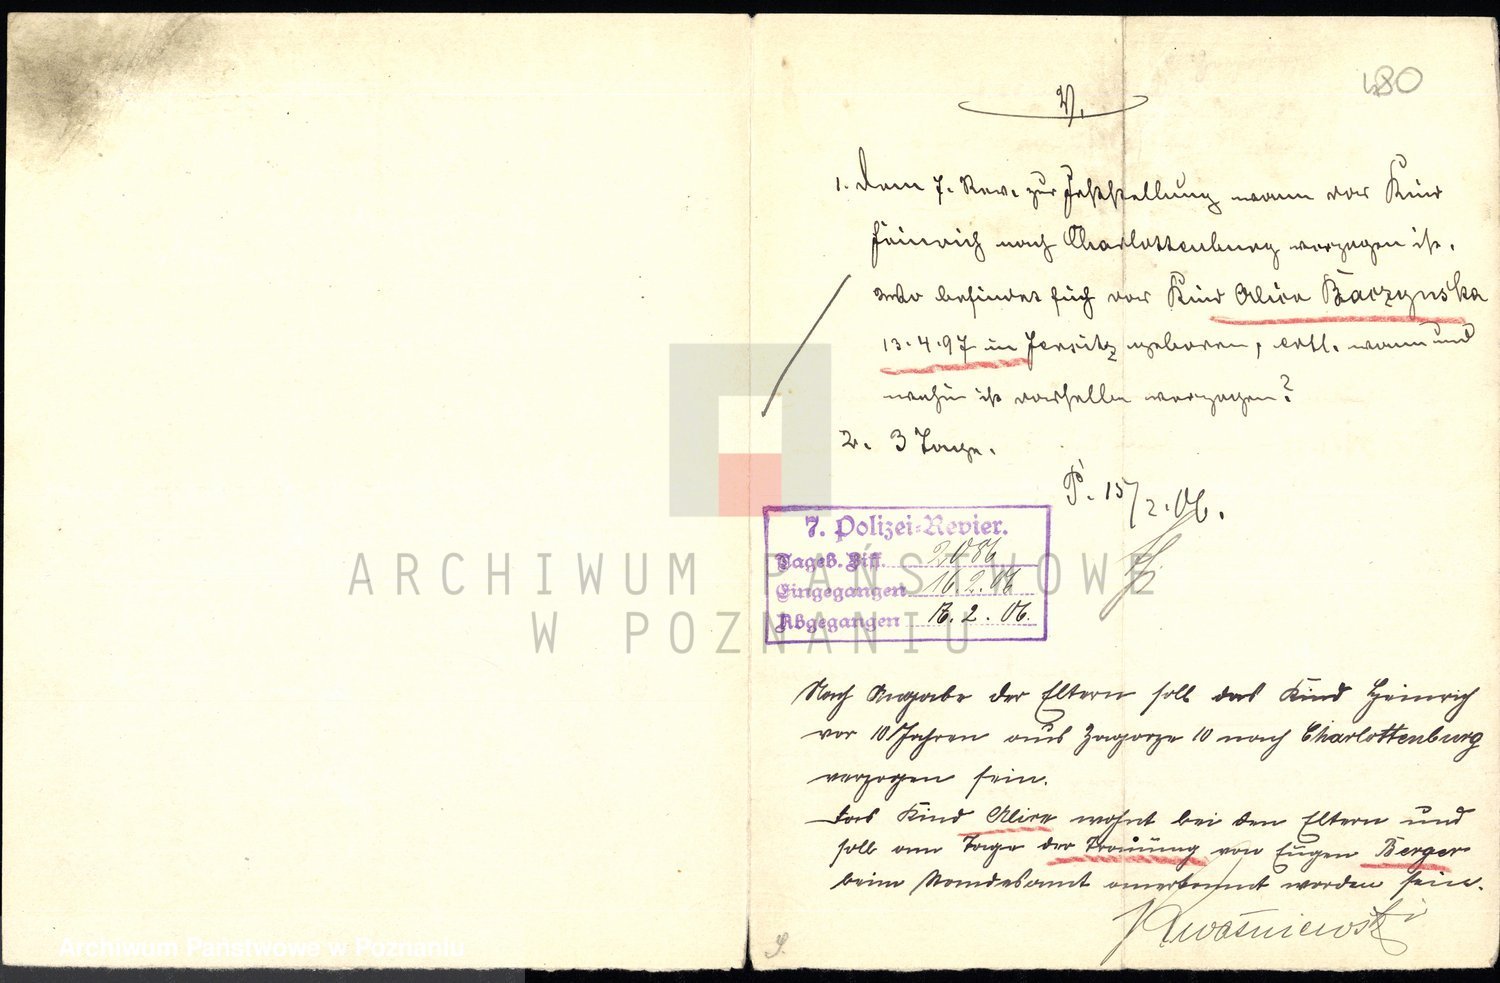 480
V.
1. Dem 7. Rev. zur Feststellung wann das Kind
Heinrich nach Charlottenburg verzogen ist.
Wo befindet sich das Kind Alice Baczynska
13.4.97 in Jersitz geboren, evtl. wann und
wohin ist dasselbe verzogen?
2. 3 Tage.
P. 15/2.06.
7. Polizei-Revier.
Tageb. Ziff. 2086
Eingegangen 16.2.06
Abgegangen 17.2.06.
Nach Angabe der Eltern soll das Kind Heinrich
vor 10 Jahren aus Zagorze 10 nach Charlottenburg
verzogen sein.
Das Kind Alice wohnt bei den Eltern und
soll am Tage der Trauung von Eugen Berger
beim Standesamt anerkannt worden sein.
Kwasniewski
ARCHIWUM PAŃSTWOWE
W POZNANIU
Archiwum Państwowe w Poznaniu